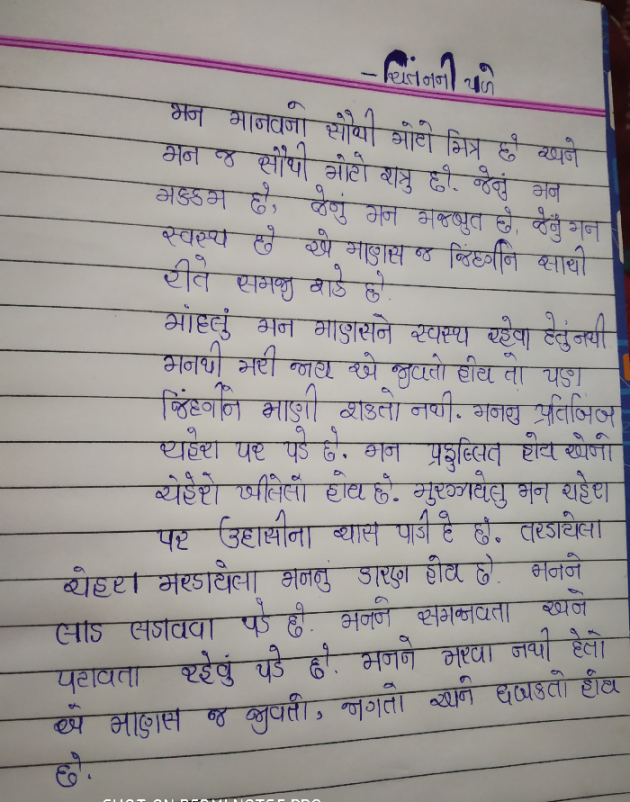 - ચિંતનની પળે
મન માનવનો સૌથી મોટો મિત્ર છે અને
મન જ સૌથી મોટો શત્રુ છે. જેનું મન
મક્કમ છે, જેનું મન મજબુત છે, જેનું મન
સ્વસ્થ છે એ માણસ જ જિંદગીને સાચી
રીતે સમજી શકે છે.
માંદલું મન માણસને સ્વસ્થ રહેવા દેતું નથી
મનથી મરી જાય એ જીવતો હોય તો પણ
જિંદગીને માણી શકતો નથી. મનનુ પ્રતિબિંબ
ચહેરા પર પડે છે. મન પ્રફુલ્લિત હોય એનો
ચેહેરો ખીલેલો હોય છે. મુરઝાયેલુ મન ચહેરા
પર ઉદાસીના ચાસ પાડી દે છે. તરડાયેલા
ચેહરા મરડાયેલા મનનું કારણ હોય છે. મનને
લાડ લડાવવા પડે છે. મનને સમજાવતા અને
પટાવતા રહેવું પડે છે. મનને મરવા નથી દેતો
એ માણસ જ જીવતો, જાગતો અને ધબકતો હોય
છે.